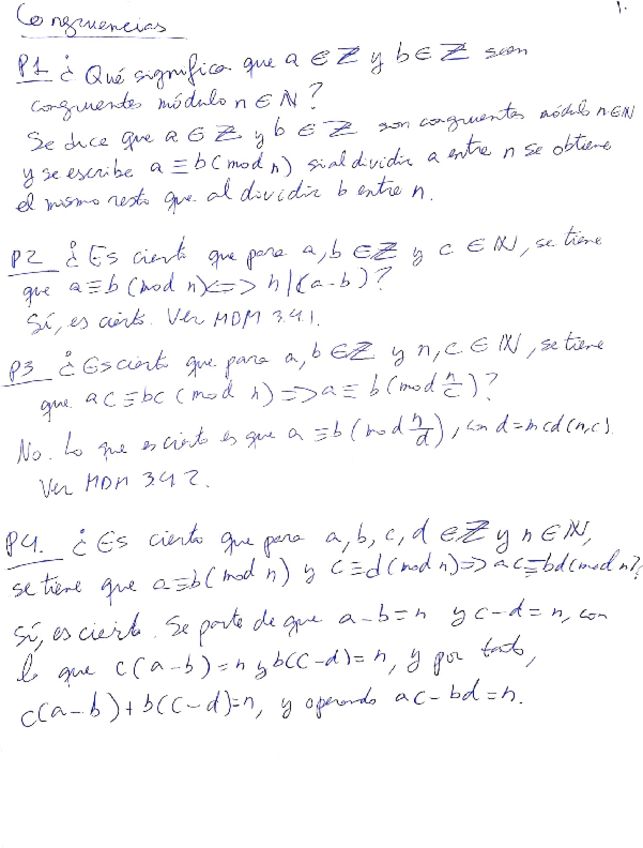 Congruencias
1.
P1 ¿Qué significa que a ∈ Z y b ∈ Z sean
congruentes módulo n ∈ N?
Se dice que a ∈ Z y b ∈ Z son congruentes módulo n ∈ N
y se escribe a ≡ b (mod n) si al dividir a entre n se obtiene
el mismo resto que al dividir b entre n.
P2 ¿Es cierto que para a, b ∈ Z y c ∈ N, se tiene
que a ≡ b (mod n) <=> n | (a-b)?
Sí, es cierto. Ver MDM 3.4.1.
P3 ¿Es cierto que para a, b ∈ Z y n, c ∈ N, se tiene
que ac ≡ bc (mod n) => a ≡ b (mod n/c)?
No. Lo que es cierto es que a ≡ b (mod n/d), con d = mcd(n,c).
Ver MDM 3.4.2.
P4. ¿Es cierto que para a, b, c, d ∈ Z y n ∈ N,
se tiene que a ≡ b (mod n) y c ≡ d (mod n) => ac ≡ bd (mod n)?
Sí, es cierto. Se parte de que a-b = n y c-d = n, con
lo que c(a-b) = n y b(c-d) = n, y por tanto,
c(a-b) + b(c-d) = n, y operando ac-bd = n.